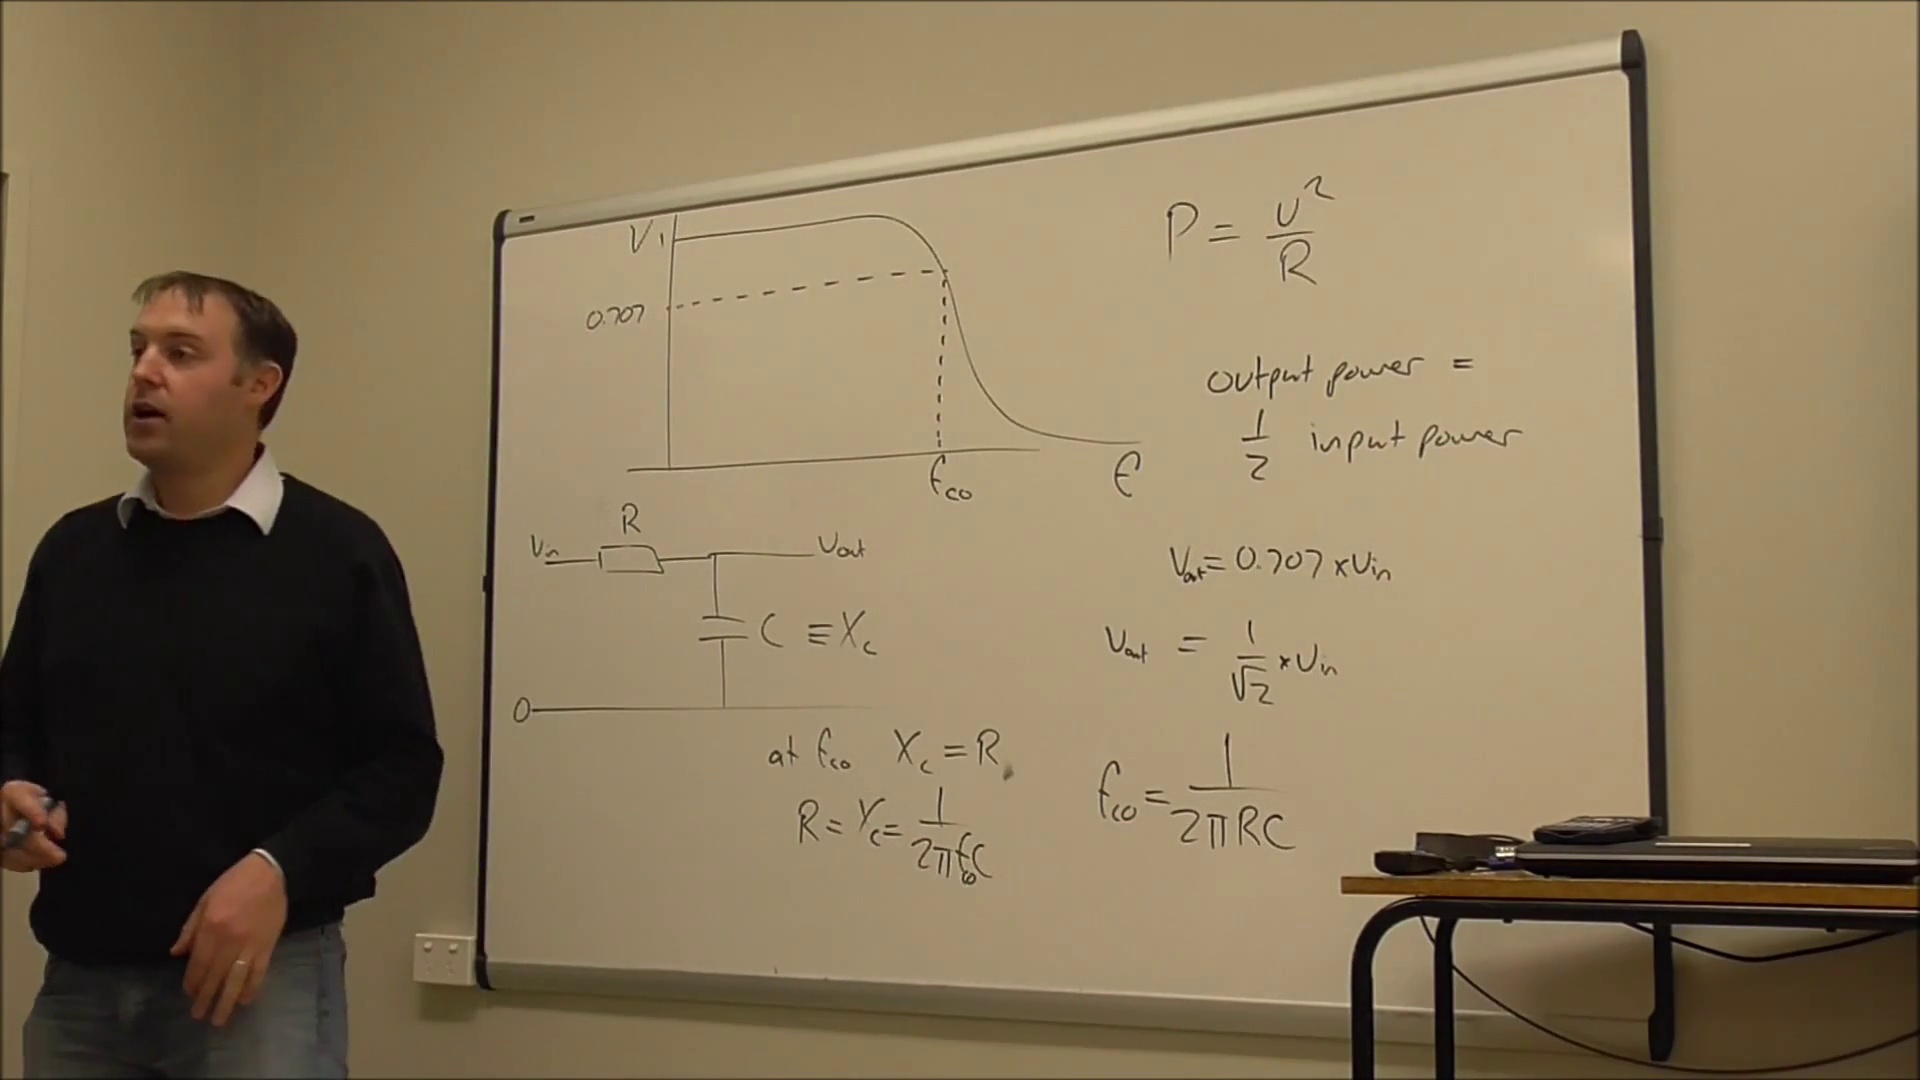 V 1
0.707
fco f
R
Vin Vout
C ≡ Xc
0
at fco Xc = R
R = Xc = 1/2πfcoC
P = V²/R
output power =
1/2 input power
Vout = 0.707 x Vin
Vout = 1/√2 x Vin
fco = 1/2πRC